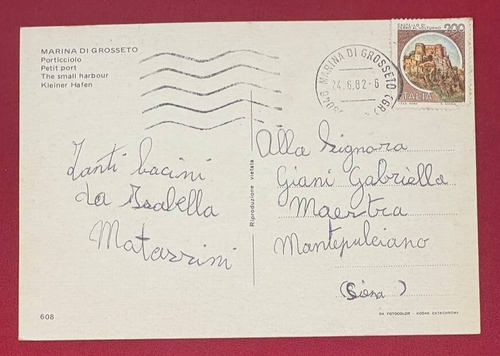 MARINA DI GROSSETO
Porticciolo
Petit port
The small harbour
Kleiner Hafen
58046 MARINA DI GROSSETO (GR)
24.6.82-6
200
ITALIA
Tanti bacini
da Isabella
Matarrini
Riproduzione vietata
Alla Signora
Giani Gabriella
Maestra
Montepulciano
(Siena)
608
DA FOTOCOLOR - KODAK EKTACHROME